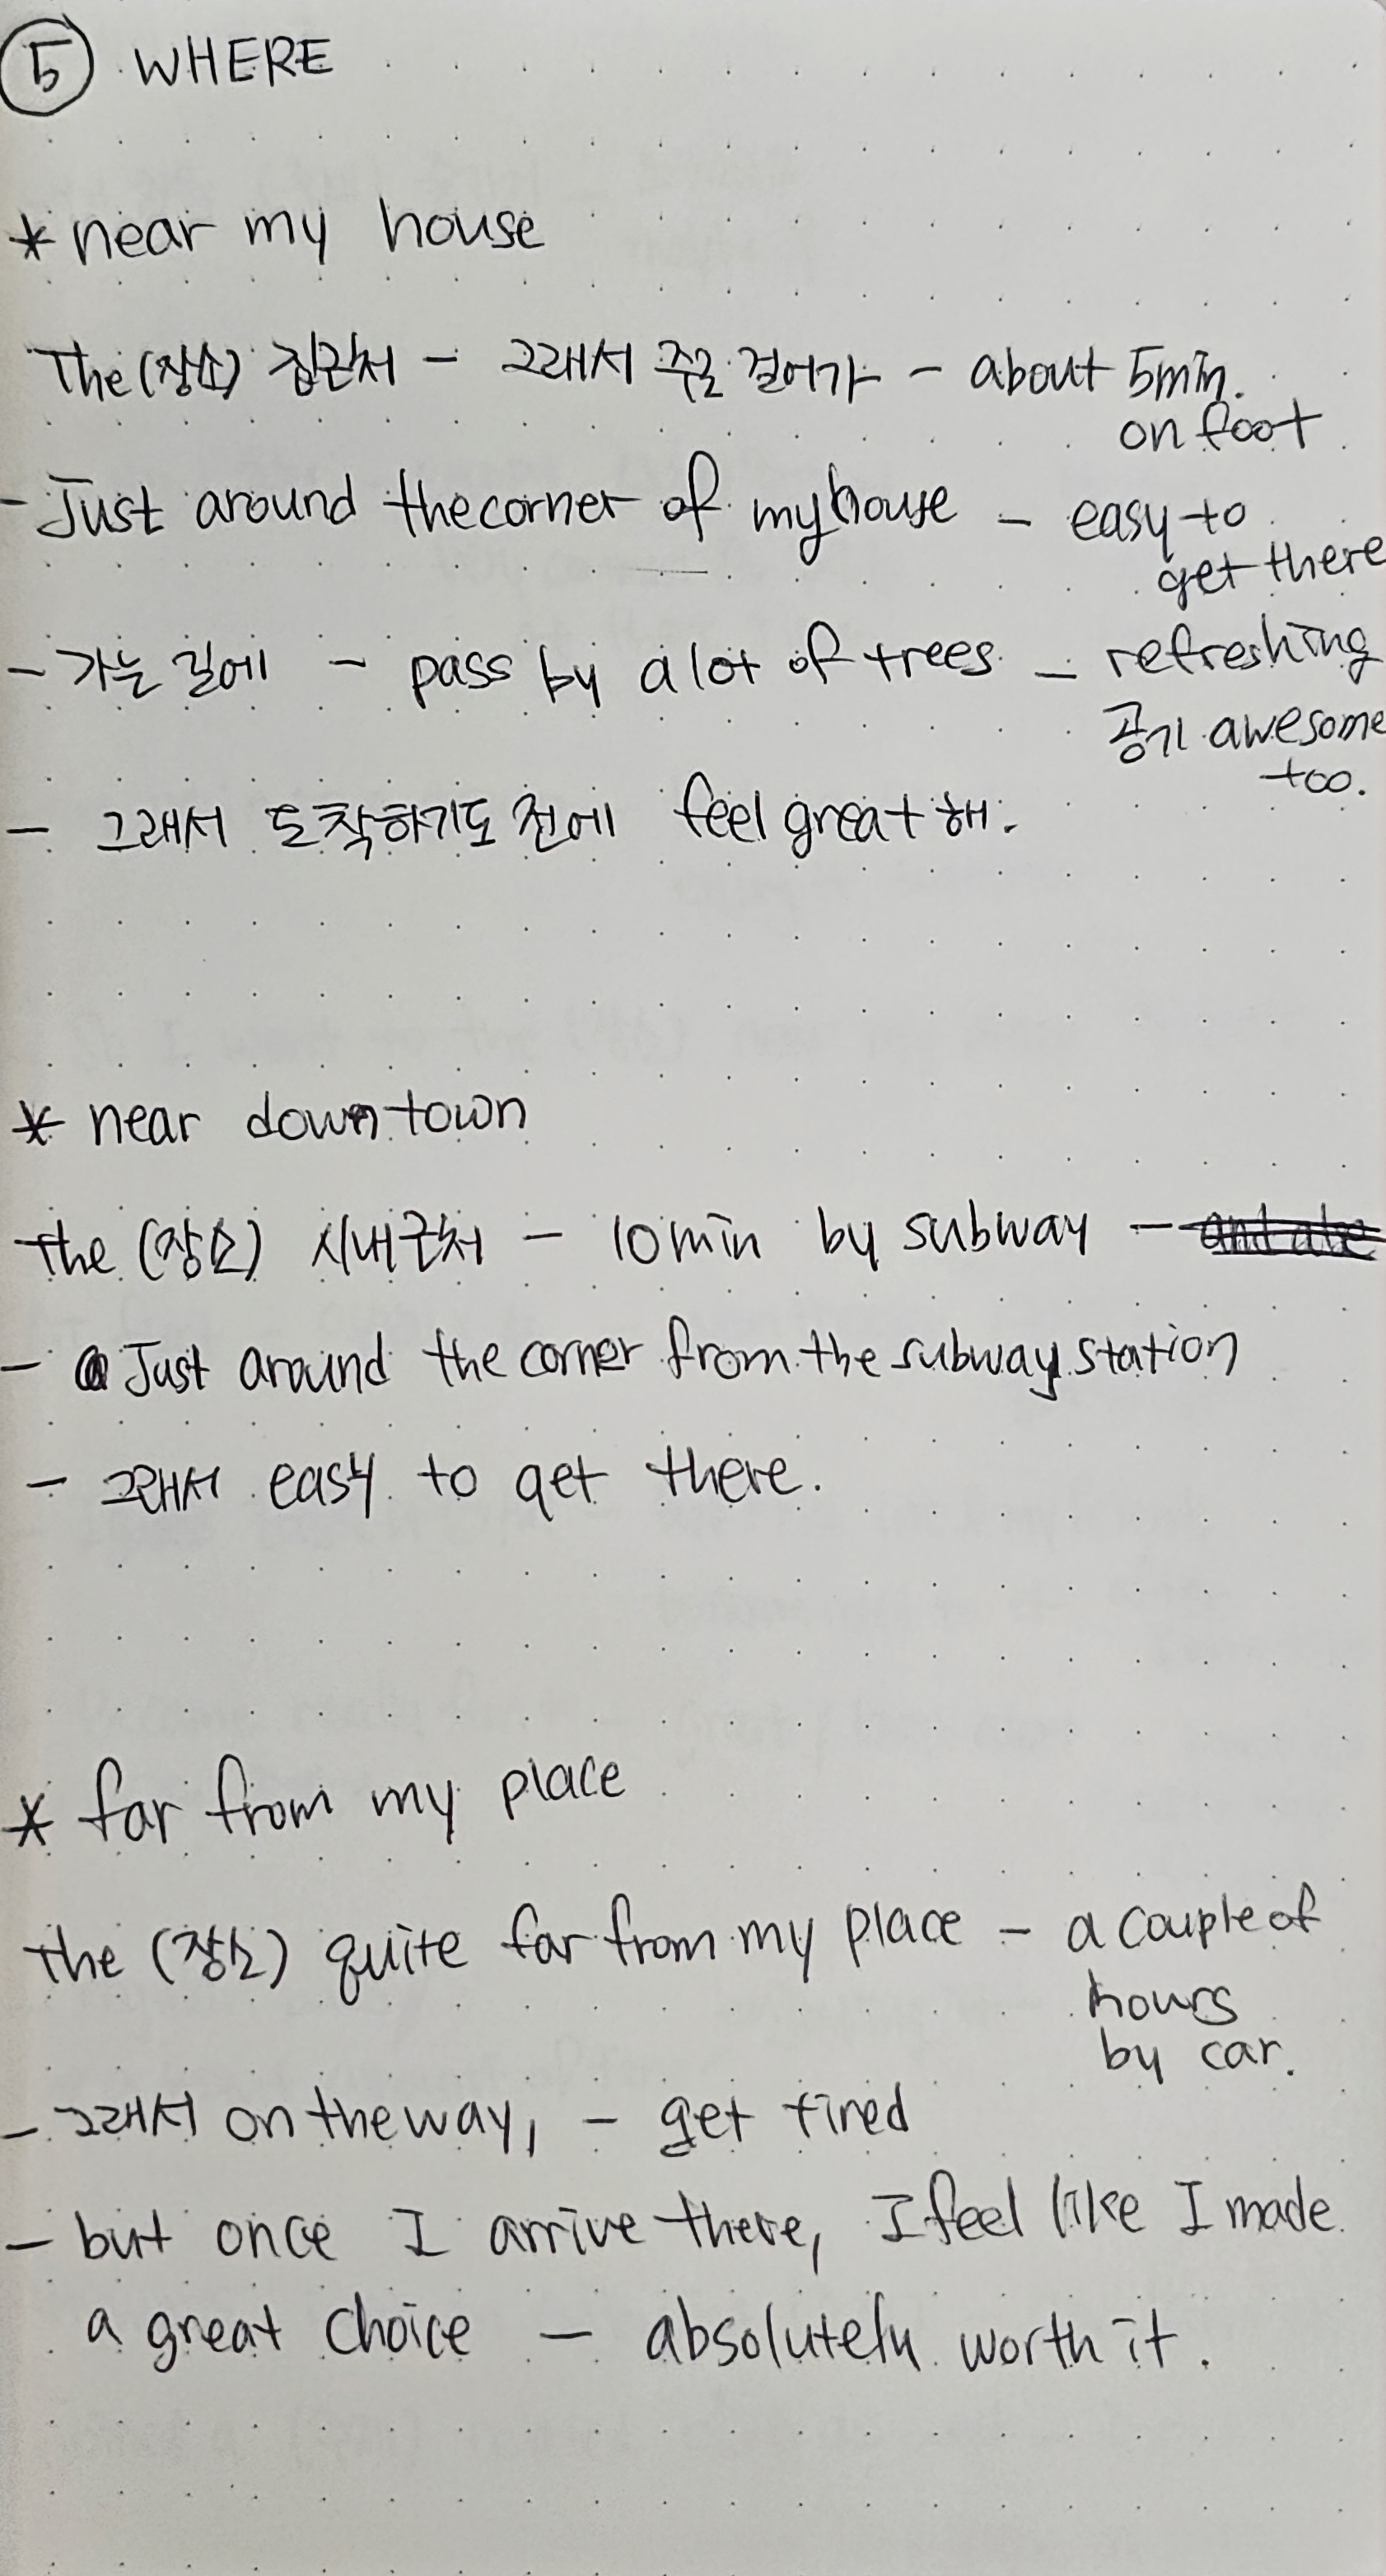 5 WHERE
* near my house
The (장소) 집근처 - 그래서 주로 걸어가 - about 5min.
on foot
- Just around the corner of my house - easy to
get there
- 가는 길에 - pass by a lot of trees - refreshing
공기 awesome
too.
- 그래서 도착하기도 전에 feel great 해.
* near downtown
the (장소) 시내근처 - 10min by subway -
- Just around the corner from the subway station
- 그래서 easy to get there.
* far from my place
the (장소) quite far from my place - a couple of
hours
by car.
- 그래서 on the way, - get tired
- but once I arrive there, I feel like I made
a great choice - absolutely worth it.